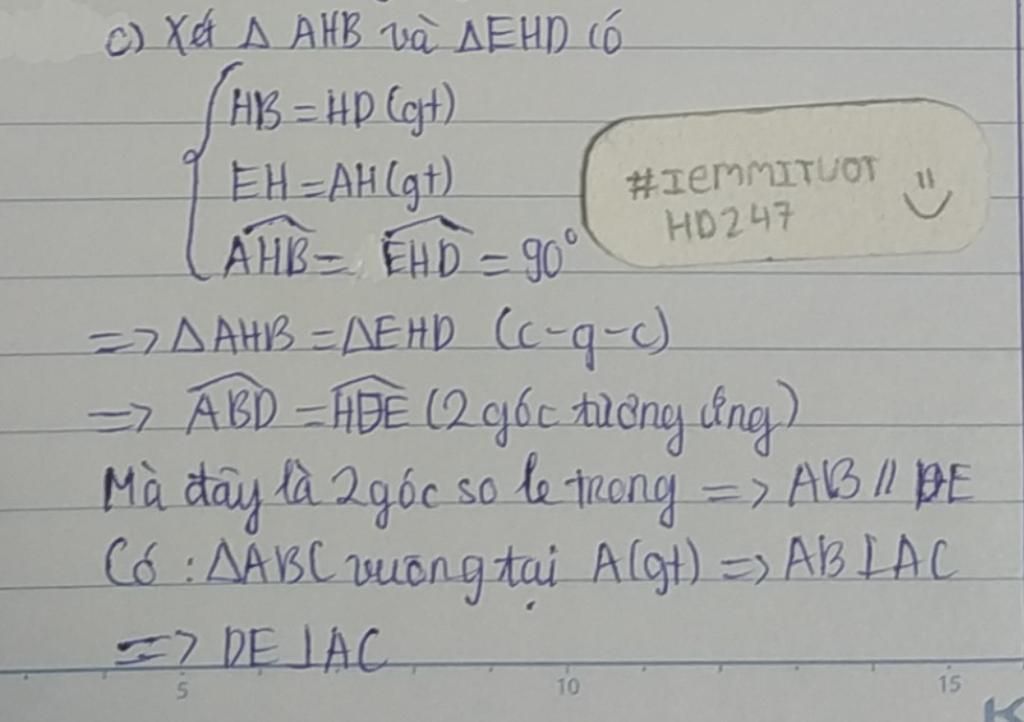 c) Xét Δ AHB và ΔEHD có
HB = HD (gt)
EH = AH (gt)
#IEMMITUOT
HD247
AHB = EHD = 90°
=> ΔAHB = ΔEHD (c-g-c)
=> ABD = HDE (2 góc tương ứng)
Mà đây là 2 góc so le trong => AB // DE
Có : ΔABC vuông tại A(gt) => AB ⊥ AC
=> DE ⊥ AC
5 10 15
K